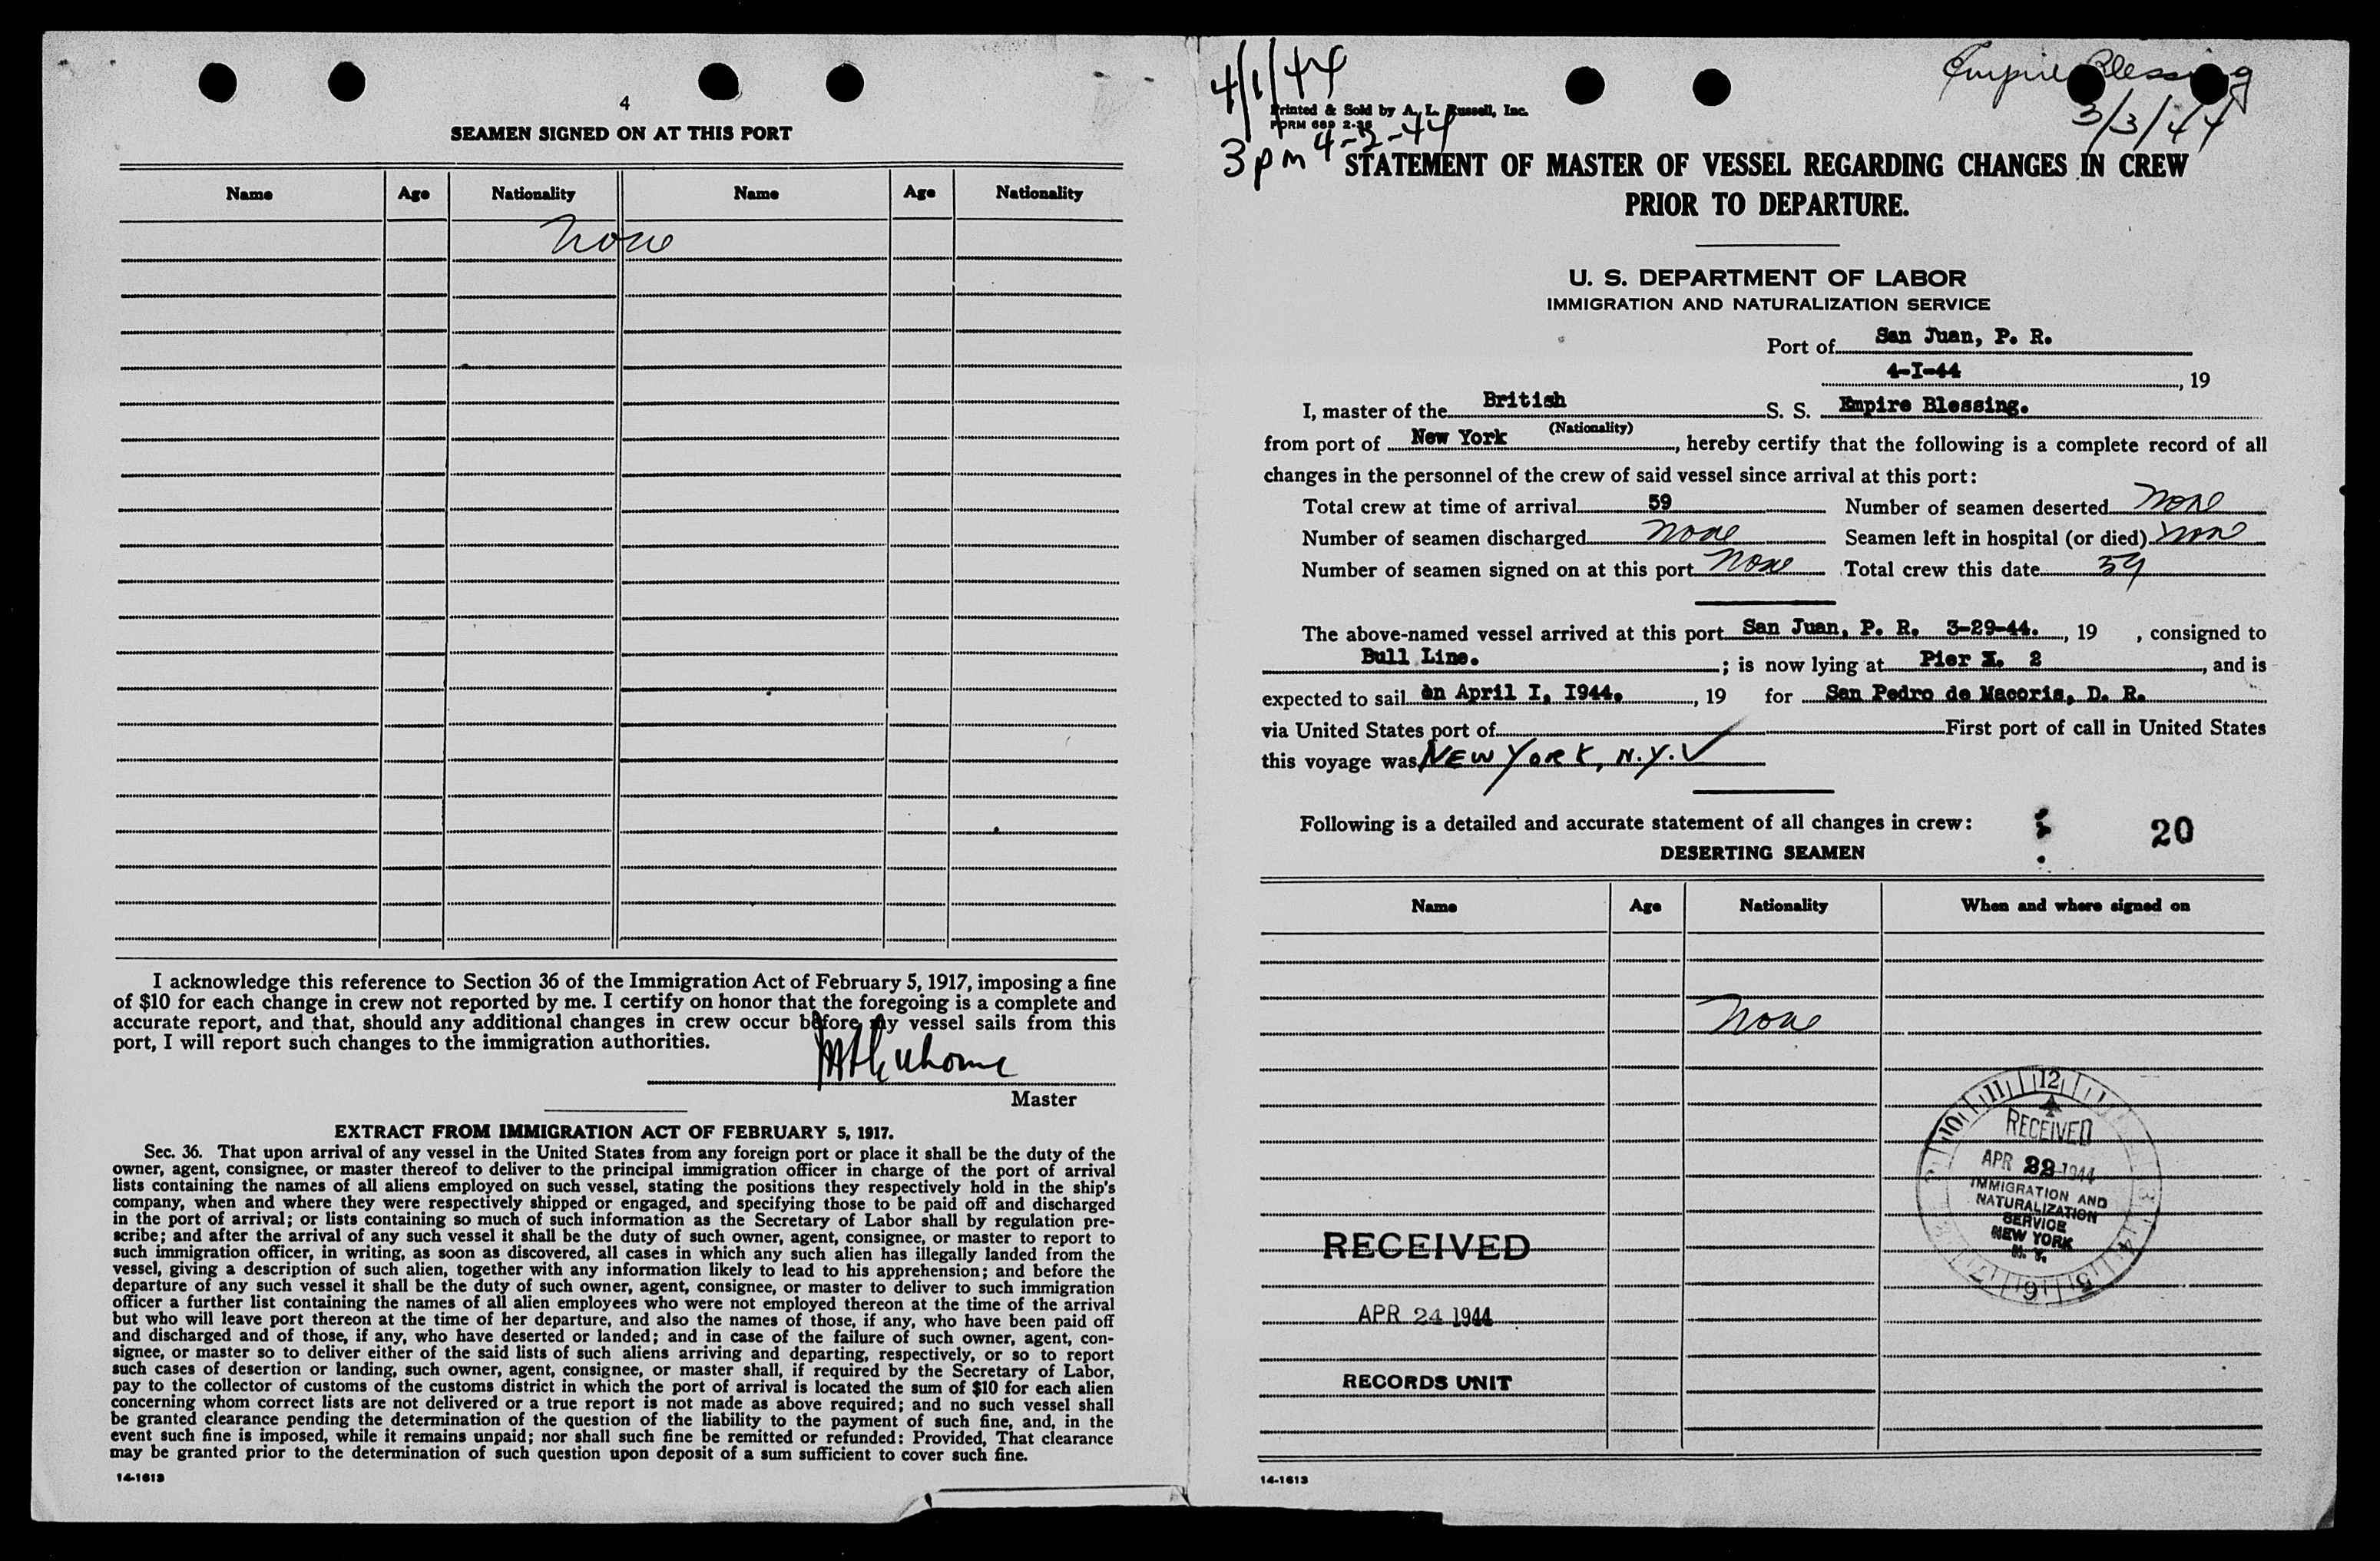 4
SEAMEN SIGNED ON AT THIS PORT
Name Age Nationality Name Age Nationality
None
I acknowledge this reference to Section 36 of the Immigration Act of February 5, 1917, imposing a fine
of $10 for each change in crew not reported by me. I certify on honor that the foregoing is a complete and
accurate report, and that, should any additional changes in crew occur before my vessel sails from this
port, I will report such changes to the immigration authorities.
Master
EXTRACT FROM IMMIGRATION ACT OF FEBRUARY 5, 1917.
Sec. 36. That upon arrival of any vessel in the United States from any foreign port or place it shall be the duty of the
owner, agent, consignee, or master thereof to deliver to the principal immigration officer in charge of the port of arrival
lists containing the names of all aliens employed on such vessel, stating the positions they respectively hold in the ship's
company, when and where they were respectively shipped or engaged, and specifying those to be paid off and discharged
in the port of arrival; or lists containing so much of such information as the Secretary of Labor shall by regulation pre-
scribe; and after the arrival of any such vessel it shall be the duty of such owner, agent, consignee, or master to report to
such immigration officer, in writing, as soon as discovered, all cases in which any such alien has illegally landed from the
vessel, giving a description of such alien, together with any information likely to lead to his apprehension; and before the
departure of any such vessel it shall be the duty of such owner, agent, consignee, or master to deliver to such immigration
officer a further list containing the names of all alien employees who were not employed thereon at the time of the arrival
but who will leave port thereon at the time of her departure, and also the names of those, if any, who have been paid off
and discharged and of those, if any, who have deserted or landed; and in case of the failure of such owner, agent, con-
signee, or master so to deliver either of the said lists of such aliens arriving and departing, respectively, or so to report
such cases of desertion or landing, such owner, agent, consignee, or master shall, if required by the Secretary of Labor,
pay to the collector of customs of the customs district in which the port of arrival is located the sum of $10 for each alien
concerning whom correct lists are not delivered or a true report is not made as above required; and no such vessel shall
be granted clearance pending the determination of the question of the liability to the payment of such fine, and, in the
event such fine is imposed, while it remains unpaid; nor shall such fine be remitted or refunded: Provided, That clearance
may be granted prior to the determination of such question upon deposit of a sum sufficient to cover such fine.
14-1613
4/1/44
Empire Blessing
3/3/44
Printed & Sold by A. L. Russell, Inc.
FORM 689 2-36
3 pm 4-2-44
STATEMENT OF MASTER OF VESSEL REGARDING CHANGES IN CREW
PRIOR TO DEPARTURE.
U. S. DEPARTMENT OF LABOR
IMMIGRATION AND NATURALIZATION SERVICE
Port of San Juan, P. R.
4-I-44, 19
I, master of the British S. S. Empire Blessing.
(Nationality)
from port of New York, hereby certify that the following is a complete record of all
changes in the personnel of the crew of said vessel since arrival at this port:
Total crew at time of arrival 59 Number of seamen deserted None
Number of seamen discharged None Seamen left in hospital (or died) None
Number of seamen signed on at this port None Total crew this date 59
The above-named vessel arrived at this port San Juan, P. R. 3-29-44., 19 , consigned to
Bull Line. ; is now lying at Pier X. 2, and is
expected to sail on April I, I944., 19 for San Pedro de Macoris, D. R.
via United States port of First port of call in United States
this voyage was NEW YORK, N.Y.
Following is a detailed and accurate statement of all changes in crew:
20
DESERTING SEAMEN
Name Age Nationality When and where signed on
None
12 1 2 3 4 5 6 7 8 9 10 11
RECEIVED
APR 22 1944
IMMIGRATION AND
NATURALIZATION
SERVICE
NEW YORK
N. Y.
RECEIVED
APR 24 1944
RECORDS UNIT
14-1613